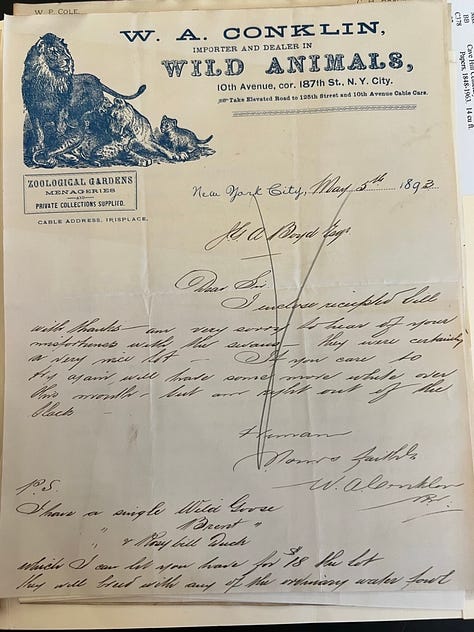 W. P. COLE
W. A. CONKLIN,
IMPORTER AND DEALER IN
WILD ANIMALS,
10th Avenue, cor. 187th St., N.Y. City.
Take Elevated Road to 125th Street and 10th Avenue Cable Cars.
ZOOLOGICAL GARDENS
MENAGERIES
AND
PRIVATE COLLECTIONS SUPPLIED.
CABLE ADDRESS, IRISPLACE.
New York City, May 5th 1893
A Boyd Esq
Dear Sir
I enclose receipted bill
with thanks am very sorry to hear of your
misfortunes with the swans - they were certainly
a very nice lot - If you care to
try again will have some more white over
this month - but am right out of the
black -
I remain
Yours faithfully
W. A. Conklin
P.S.
I have a single Wild Goose
" " Brent "
" & Rosy bill Duck
which I can let you have for $18 the lot
they will breed with any of the ordinary water fowl
BB
C178
Cave Hill
Papers, 1848-1963. 14 cu ft